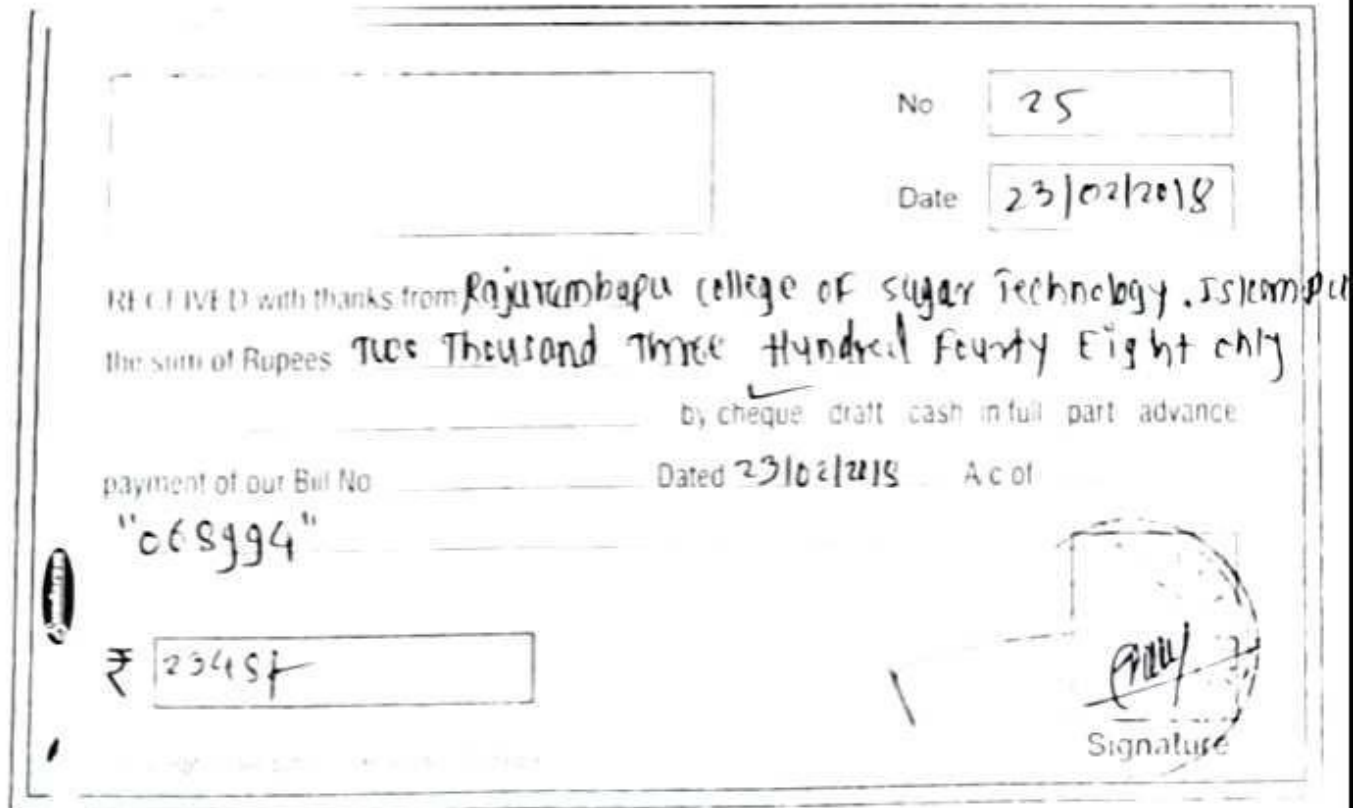 No 25
Date 23/02/2018
RECEIVED with thanks from Rajarambapu college of sugar Technology. Islampu
the sum of Rupees Two Thousand Three Hundred Fourty Eight only
by cheque draft cash in full part advance
payment of our Bill No Dated 23/02/2018 A c of
"068994"
₹ 2348/-
Signature